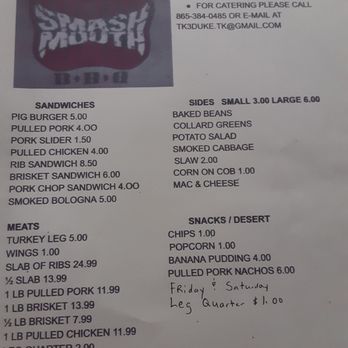 SMASH
MOUTH
B·B·Q
• FOR CATERING PLEASE CALL
865-384-0485 OR E-MAIL AT
TK3DUKE.TK@GMAIL.COM
SANDWICHES
PIG BURGER 5.00
PULLED PORK 4.OO
PORK SLIDER 1.50
PULLED CHICKEN 4.00
RIB SANDWICH 8.50
BRISKET SANDWICH 6.00
PORK CHOP SANDWICH 4.OO
SMOKED BOLOGNA 5.00
MEATS
TURKEY LEG 5.00
WINGS 1.00
SLAB OF RIBS 24.99
½ SLAB 13.99
1 LB PULLED PORK 11.99
1 LB BRISKET 13.99
½ LB BRISKET 7.99
1 LB PULLED CHICKEN 11.99
QUARTER 2.00
SIDES SMALL 3.00 LARGE 6.00
BAKED BEANS
COLLARD GREENS
POTATO SALAD
SMOKED CABBAGE
SLAW 2.00
CORN ON COB 1.00
MAC & CHEESE
SNACKS / DESERT
CHIPS 1.00
POPCORN 1.00
BANANA PUDDING 4.00
PULLED PORK NACHOS 6.00
Friday & Saturday
Leg Quarter $1.00